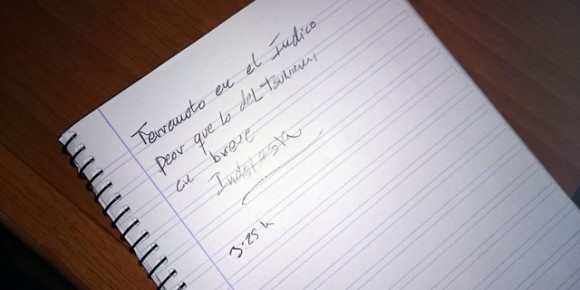 Terremoto en el Índico
peor que lo del tsunami,
en breve
3:25 h